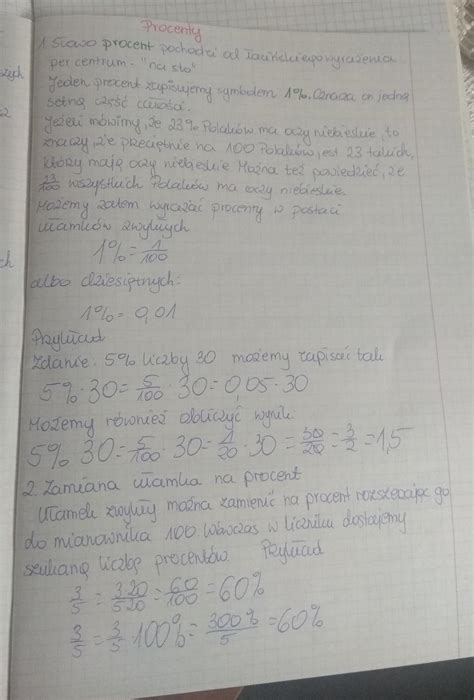 Procenty
1. Słowo procent pochodzi od łacińskiego wyrażenia
per centrum - "na sto"
Jeden procent zapisujemy symbolem 1%. Oznacza on jedną
setną część całości.
Jeżeli mówimy, że 23% Polaków ma oczy niebieskie, to
znaczy, że przeciętnie na 100 Polaków jest 23 takich,
którzy mają oczy niebieskie Można też powiedzieć, że
23/100 wszystkich Polaków ma oczy niebieskie.
Możemy zatem wyrażać procenty w postaci
ułamków zwykłych
1% = 1/100
albo dziesiętnych:
1% = 0,01
Przykład
Zdanie: 5% liczby 30 możemy zapisać tak
5% · 30 = 5/100 · 30 = 0,05 · 30
Możemy również obliczyć wynik
5% 30 = 5/100 · 30 = 1/20 · 30 = 30/20 = 3/2 = 1,5
2. Zamiana ułamka na procent
Ułamek zwykły można zamienić na procent rozszerzając go
do mianownika 100. Wówczas w liczniku dostajemy
szukaną liczbę procentów. Przykład
3/5 = 3·20/5·20 = 60/100 = 60%
3/5 = 3/5 · 100% = 300%/5 = 60%